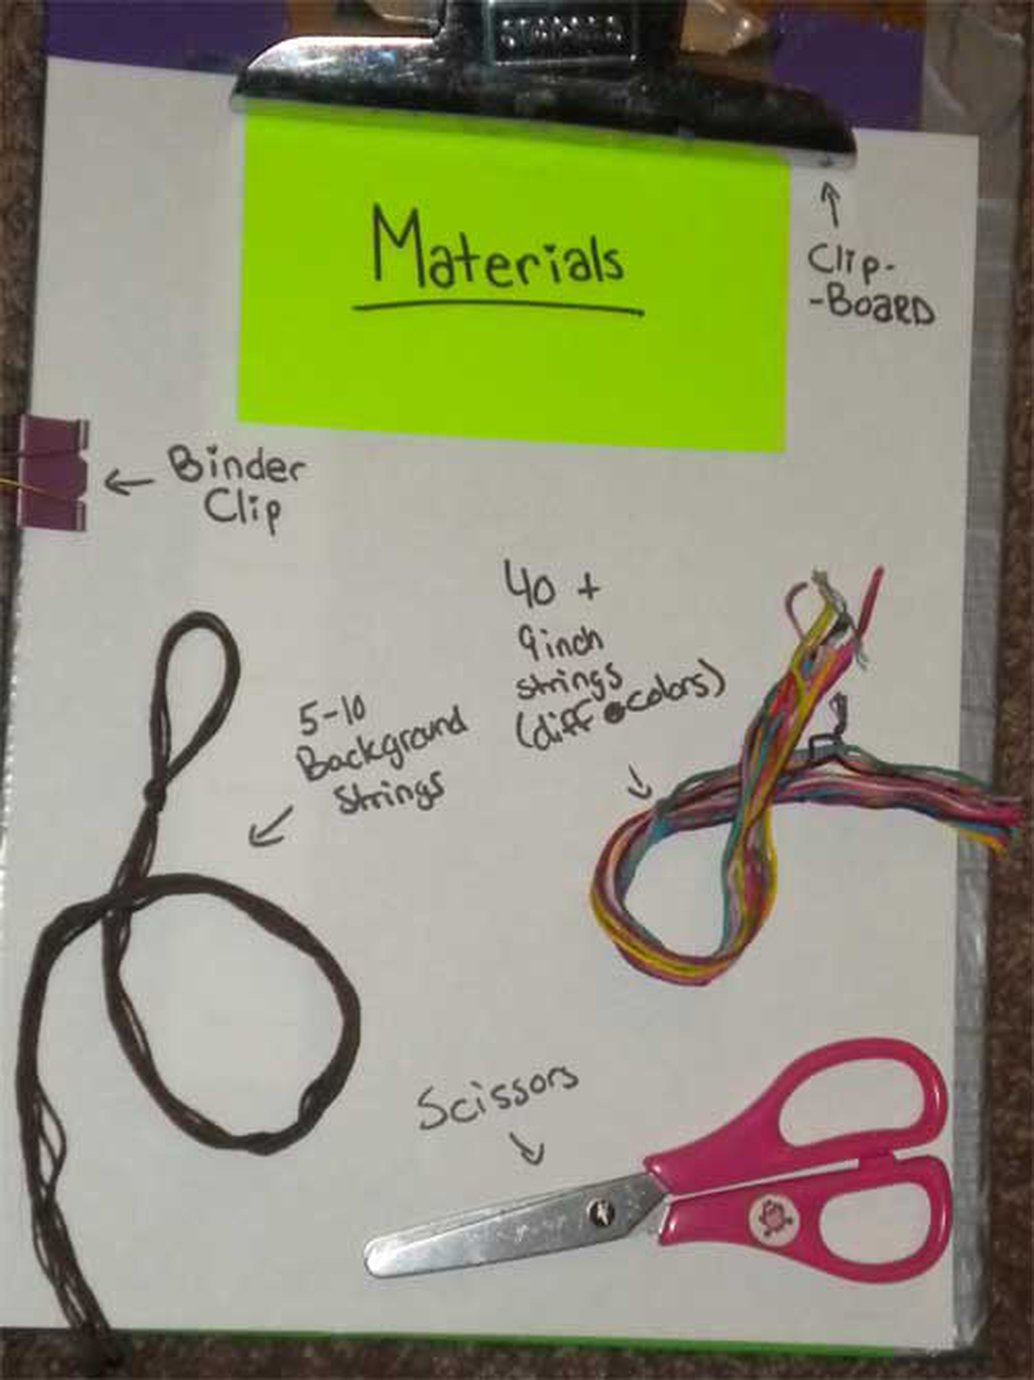 Materials
Clip-
-BOARD
Binder
Clip
40 +
9inch
strings
(diff colors)
5-10
Background
Strings
Scissors